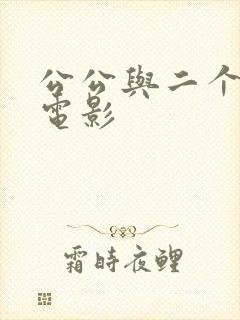 公公與二个
電影
霜時夜鯉